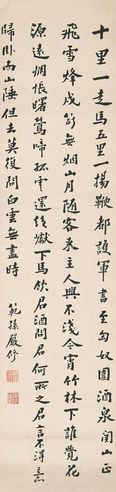 十里一走馬五里一揚鞭都護軍書至匈奴圍酒泉關山正
飛雪烽戍斷無烟山月隨客來主人興不淺今宵竹林下誰覺花
源遠惆悵曙鶯啼孤雲還絕巘下馬飲君酒問君何所之君言不得意
歸卧南山陲但去莫復問白雲無盡時
範孫嚴修